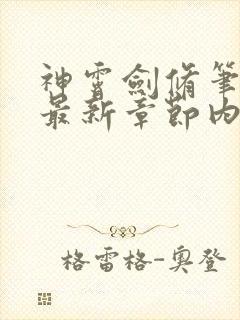 神霄劍脩筆
最新章節內
格雷格-奧登